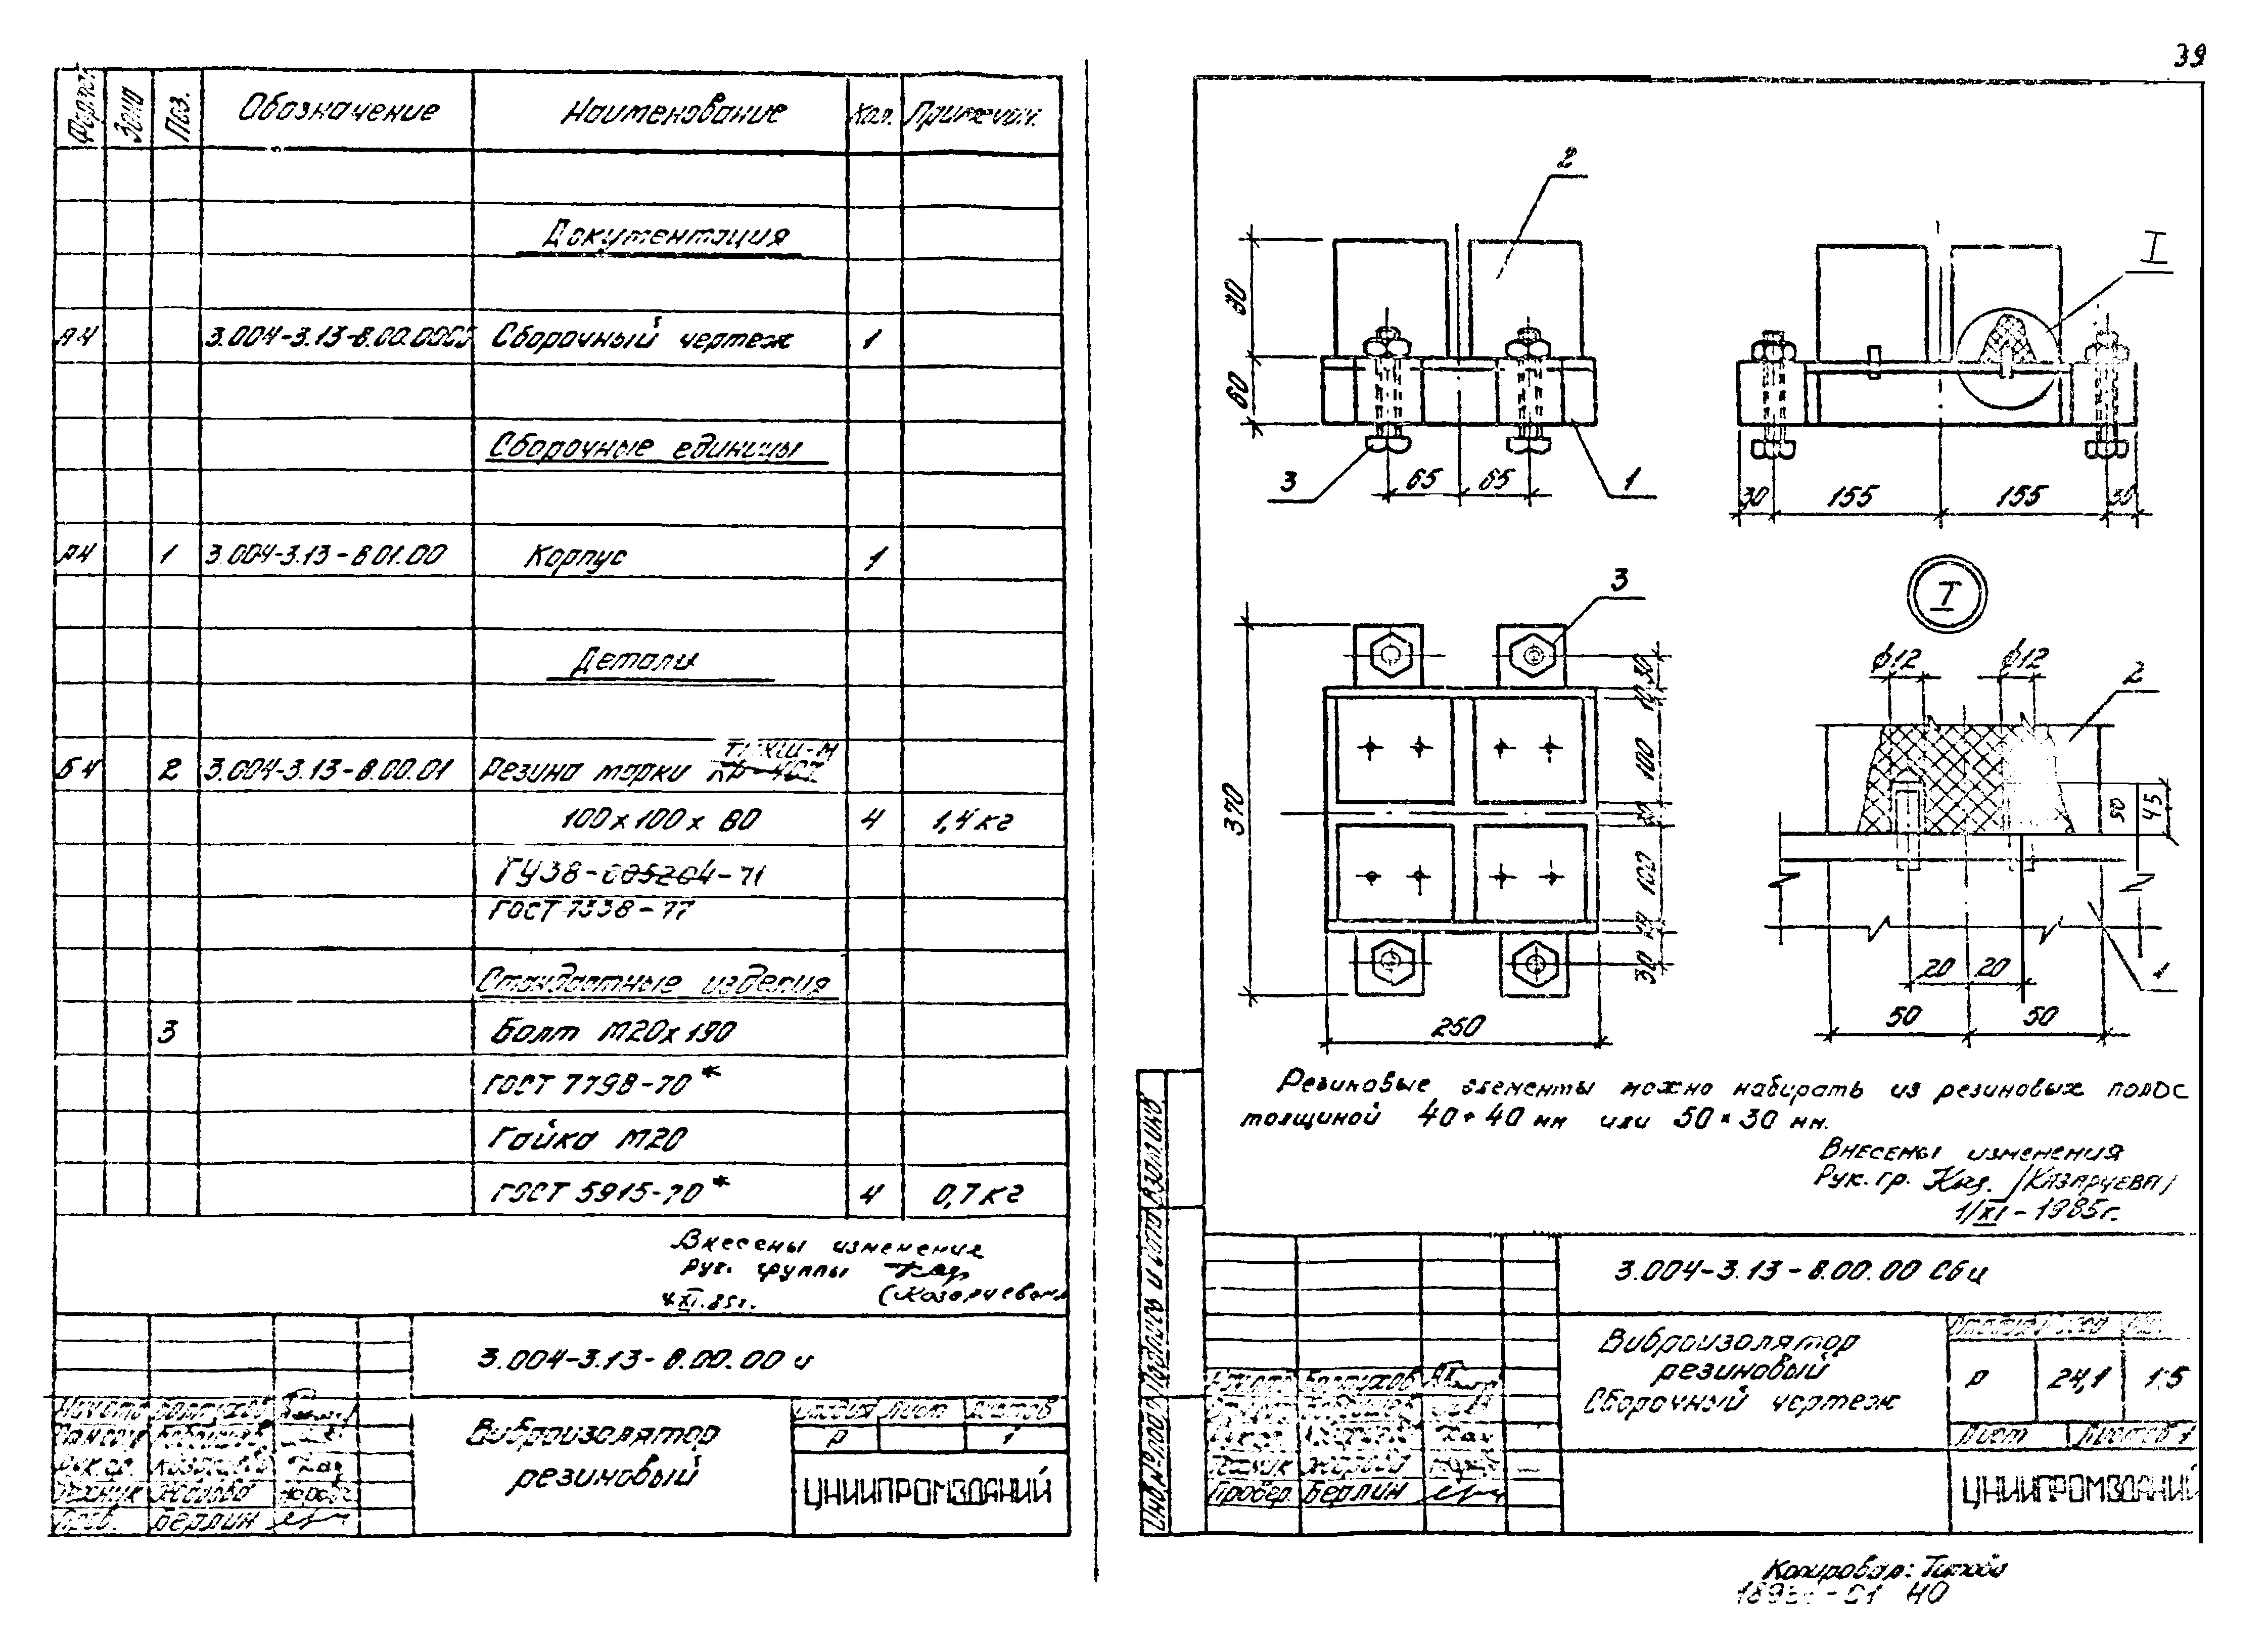 39
Формат Зона Поз. Обозначение Наименование Кол. Примечан.
Документация
А4 3.004-3.13-8.00.00СБ Сборочный чертеж 1
Сборочные единицы
А4 1 3.004-3.13-8.01.00 Корпус 1
Детали
Б4 2 3.004-3.13-8.00.01 Резина марки
100х100х80 4 1,4кг
ТУ38-005204-71
ГОСТ 7338-77
Стандартные изделия
3 Болт М20х190
ГОСТ 7798-70*
Гайка М20
ГОСТ 5915-70* 4 0,7кг
Внесены изменения
Рук. группы
3.004-3.13-8.00.00 и
Виброизолятор
резиновый
Стадия Лист Листов
Р 1
ЦНИИПРОМЗДАНИЙ
Пров. Берлин
2
I
80
60
3 65 65 1
30 155 155 30
3
I
30
10
100
370
100
30
250
ф12 ф12
2
50 45
20 20
1
50 50
Резиновые элементы можно набирать из резиновых полос
толщиной 40+40 мм или 50+30 мм.
Внесены изменения
Рук. гр. Каз. /Казаричева/
1/XI-1985г.
Инв.№подл. Подпись и дата Взам.инв.
3.004-3.13-8.00.00 Сб и
Виброизолятор
резиновый
Сборочный чертеж
Р 24,1 1:5
Лист Листов 1
Провер. Берлин
ЦНИИПРОМЗДАНИЙ
Копировал: Титова
40